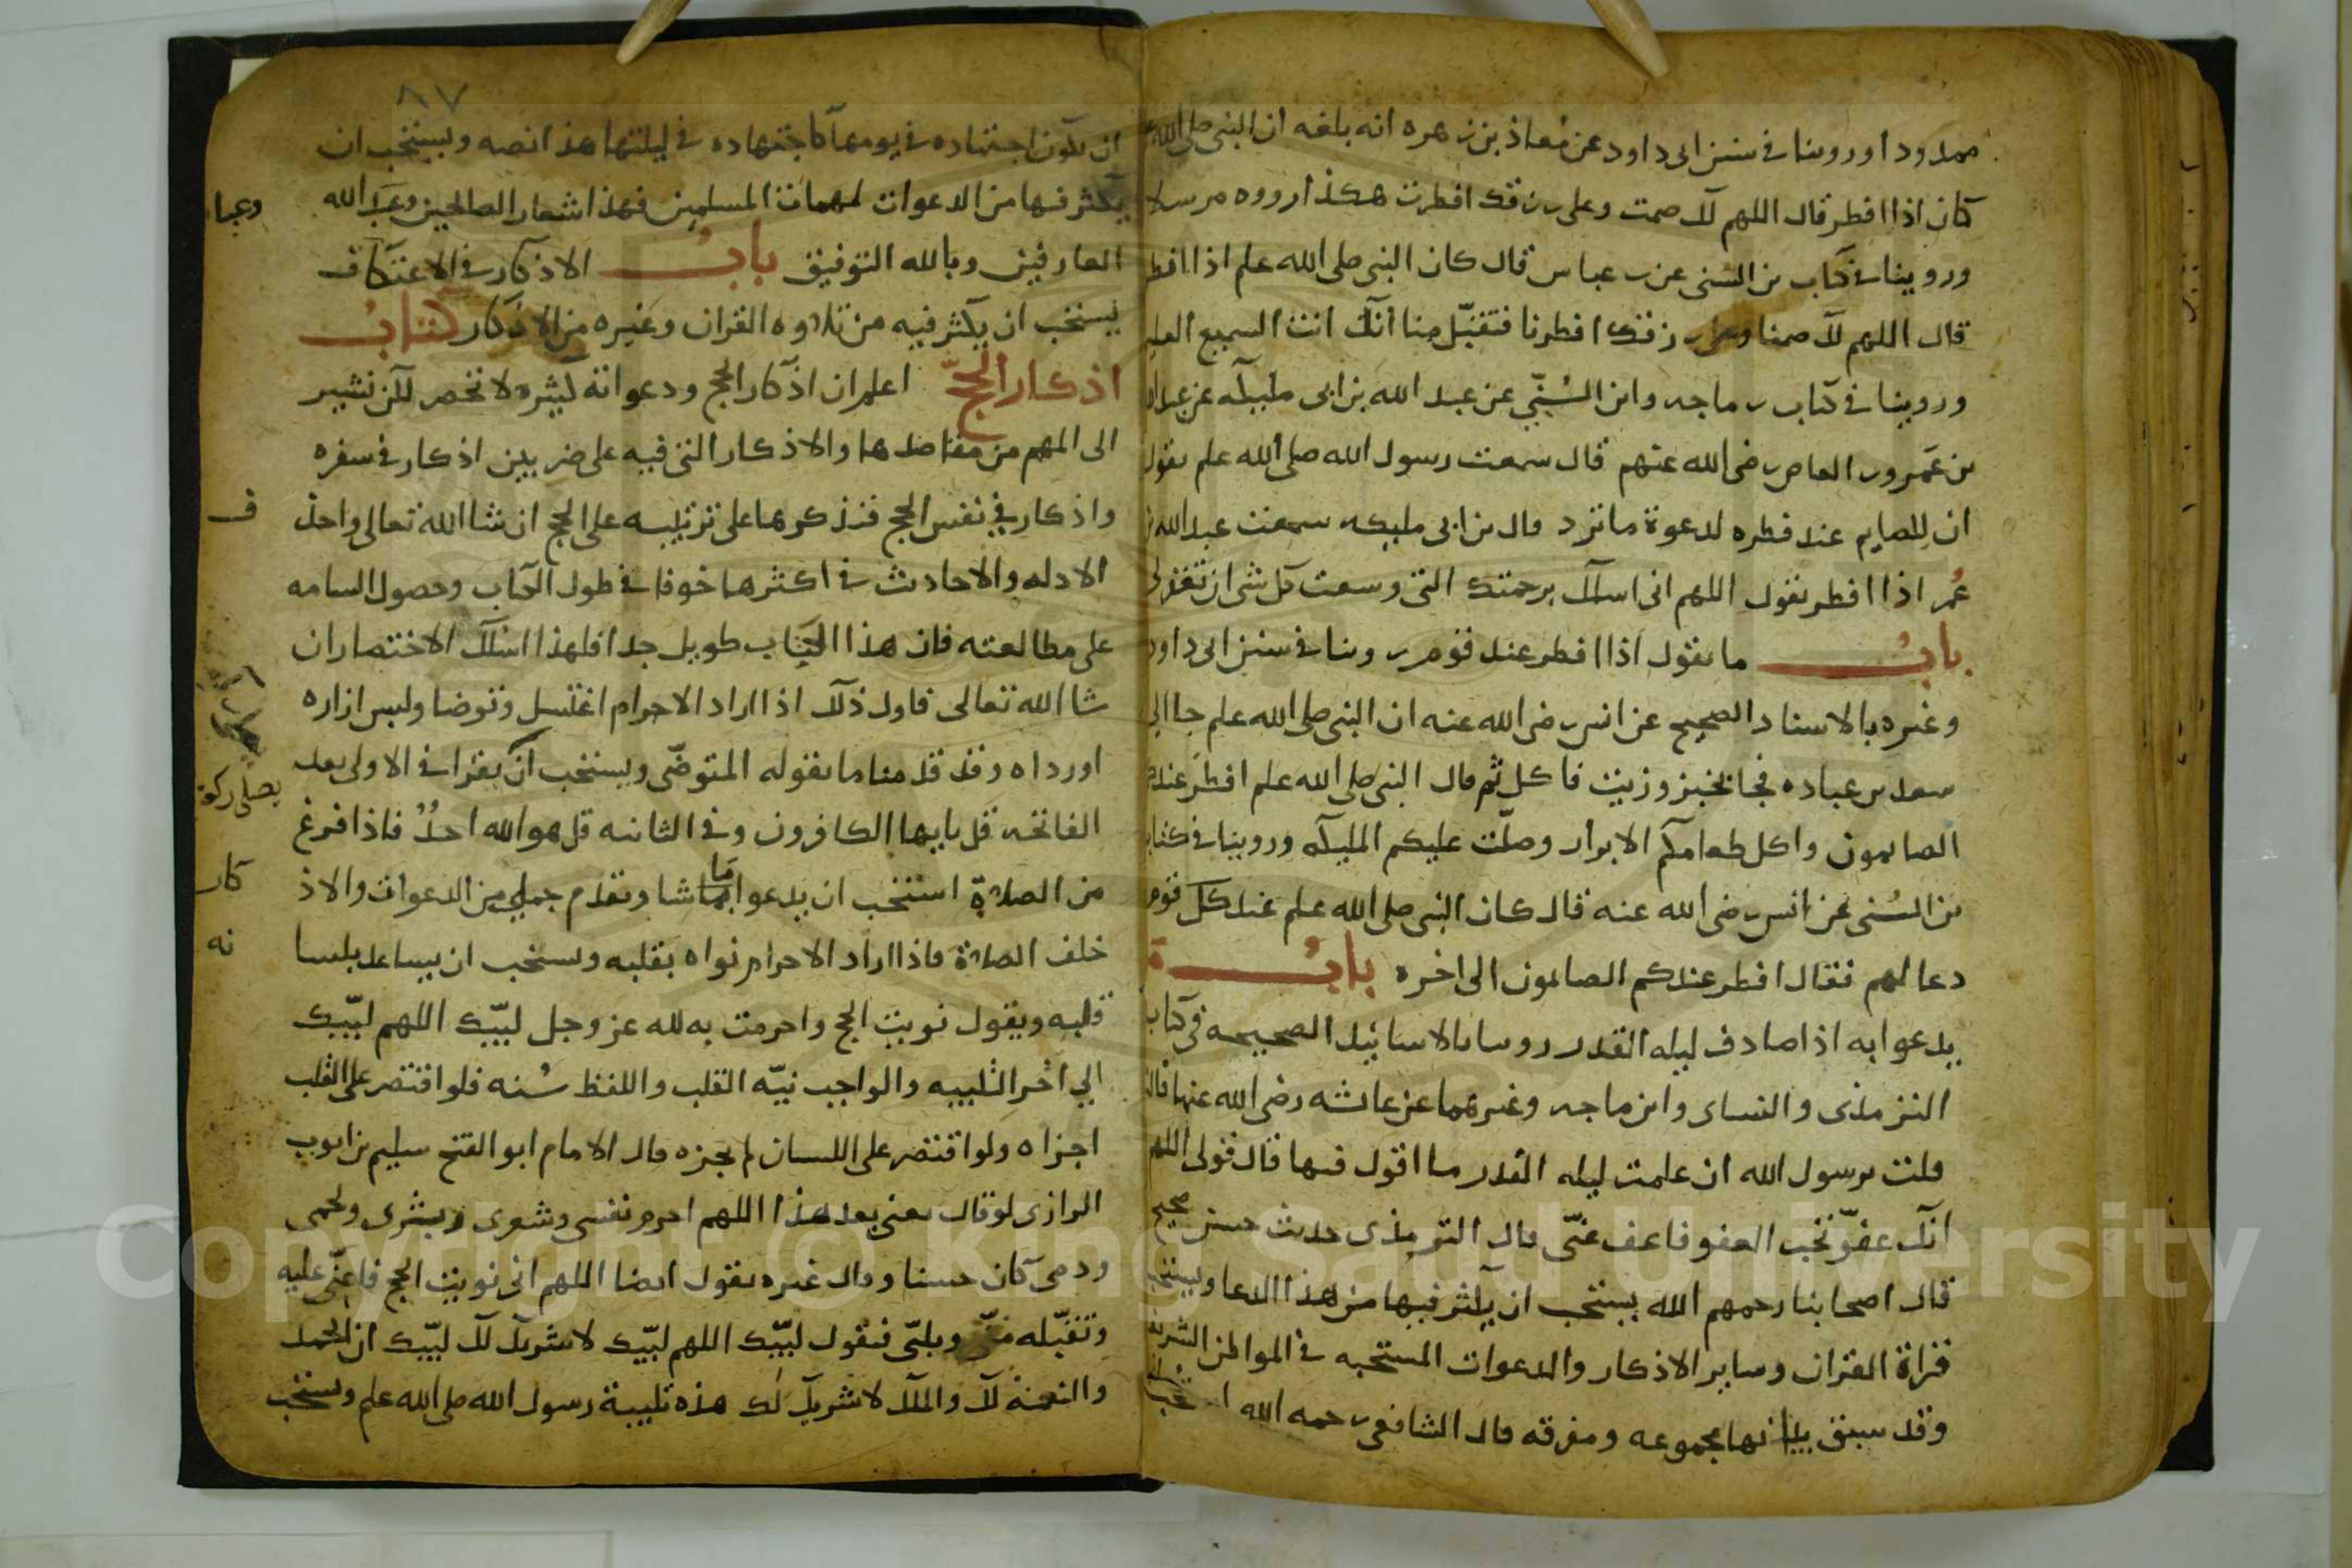 ممدودا وروينا في سنن ابي داود عن معاذ بن زهره انه بلغه ان النبي صلى الله
كان اذا افطر قال اللهم لك صمت وعلى رزقك افطرت هكذا رووه مرسلا
وروينا في كتاب بن السني عن بن عباس قال كان النبي صلى الله علم اذا افطر
قال اللهم لك صمنا وعلى رزقك افطرنا فتقبل منا انك انت السميع العليم
وروينا في كتاب بن ماجه وابن السني عن عبد الله بن ابي مليكه عن عبد الله
بن عمرو بن العاص رضي الله عنهم قال سمعت رسول الله صلى الله علم يقول
ان للصايم عند فطره لدعوة ما ترد قال بن ابي مليكه سمعت عبد الله بن
عمر اذا افطر يقول اللهم اني اسالك برحمتك التي وسعت كل شي ان تغفر لي
باب ما يقول اذا افطر عند قوم روينا في سنن ابي داود
وغيره بالاسناد الصحيح عن انس رضي الله عنه ان النبي صلى الله علم جا الى
سعد بن عباده فجا بخبز وزيت فاكل ثم قال النبي صلى الله علم افطر عندكم
الصايمون واكل طعامكم الابرار وصلت عليكم المليكه وروينا في كتاب
بن السني عن انس رضي الله عنه قال كان النبي صلى الله علم عند كل قوم
دعا لهم فقال افطر عندكم الصايمون الى اخره باب
يدعوا به اذا صادف ليله القدر روينا بالاسانيد الصحيحه في كتاب
الترمذي والنساي وابن ماجه وغيرهما عن عائشه رضي الله عنها قالت
قلت يرسول الله ان علمت ليله القدر ما اقول فيها قال قولي اللهم
انك عفو تحب العفو فاعف عني قال الترمذي حديث حسن صحيح
قال اصحابنا رحمهم الله يستحب ان يكثر فيها من هذا الدعا ويستحب
قراة القران وساير الاذكار والدعوات المستحبه في المواطن الشريفه
وقد سبق بيانها مجموعه ومفرقه قال الشافعي رحمه الله
٨٧
ان يكون اجتهاده في يومها كاجتهاده في ليلتها هذا نصه ويستحب ان
يكثر فيها من الدعوات لمهمات المسلمين فهذا شعار الصالحين وعباد الله
وعبا
العارفين وبالله التوفيق باب الاذكار في الاعتكاف
يستحب ان يكثر فيه من تلاوه القران وغيره من الاذكار كتاب
اذكار الحج اعلم ان اذكار الحج ودعواته كثيره لا تحصر لكن نشير
الى المهم من مقاصدها والاذكار التي فيه على ضربين اذكار في سفره
واذكار في نفس الحج فنذكرها على ترتيبه على الحج ان شا الله تعالى واحذ
ف
الادله والاحاديث في اكثرها خوفا في طول الكتاب وحصول السامه
على مطالعته فان هذا الكتاب طويل جدا فلهذا اسلك الاختصار ان
شا الله تعالى فاول ذلك اذا اراد الاحرام اغتسل وتوضا ولبس ازاره
اورداه وقد قدمنا ما يقوله المتوضي ويستحب ان يقرا في الاولى بعد
يصلي ركع
الفاتحه قل يايها الكافرون وفي الثانيه قل هو الله احد فاذا فرغ
من الصلاة استحب ان يدعوا بما شا وتقدم جمل من الدعوات والاذ
كار
خلف الصلاة فاذا اراد الاحرام نواه بقلبه ويستحب ان يساعد بلسا
نه
قلبه ويقول نويت الحج واحرمت به لله عز وجل لبيك اللهم لبيك
الي اخر التلبيه والواجب نيه القلب واللفظ سنه فلو اقتصر على القلب
اجزاه ولو اقتصر على اللسان لم يجزه قال الامام ابو الفتح سليم بن ايوب
الرازي لو قال يعني بعد هذا اللهم احرم نفسي وشعري وبشري ولحمي
ودمي كان حسنا وقال غيره يقول ايضا اللهم اني نويت الحج فاعني عليه
وتقبله مني ويلبي فيقول لبيك اللهم لبيك لا شريك لك لبيك ان الحمد
والنعمة لك والملك لا شريك لك هذه تلبية رسول الله صلى الله علم ويستحب
Copyright © King Saud University